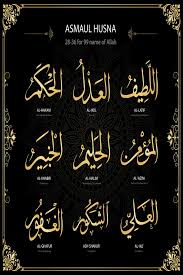 ASMAUL HUSNA
28-36 for 99 name of Allah
اللطيف العدل الحكم
AL-HAKAM AL-ADL AL-LATIF
الحليم الخبير
AL-KHABIR AL-HALIM
العلي الشكور الغفور
AL-GHAFUR ASH-SHAKUR